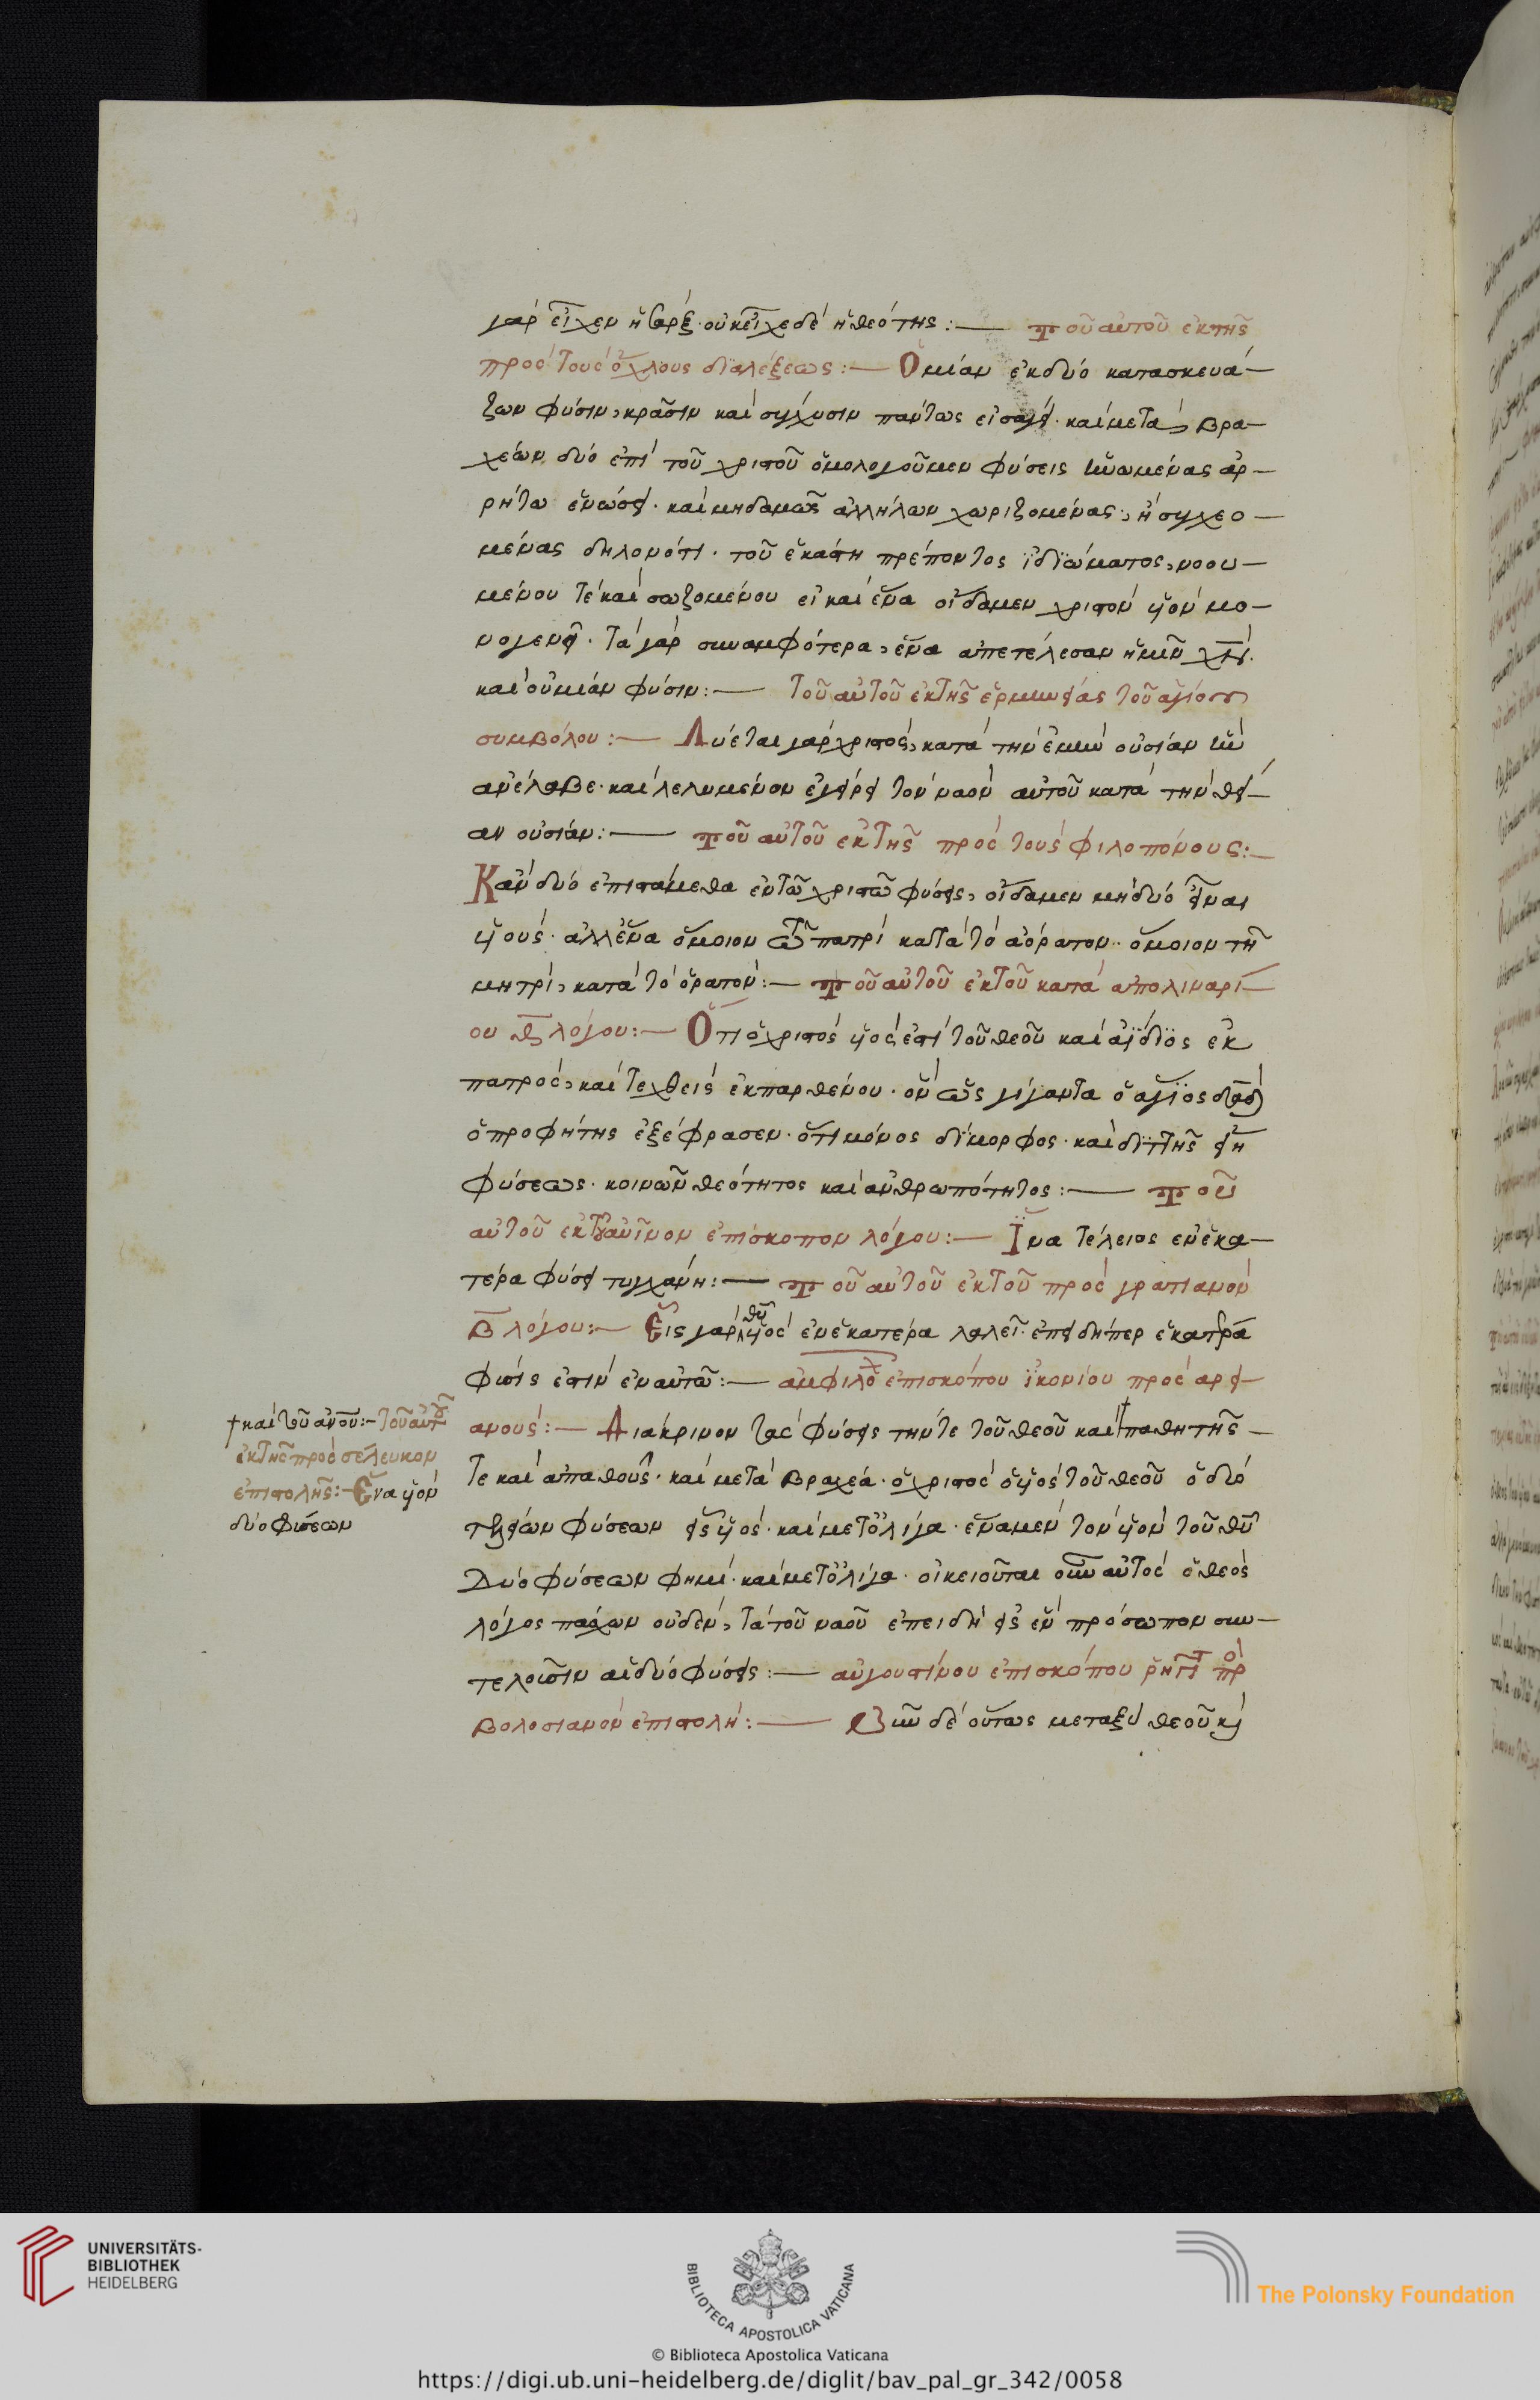 γὰρ εἶχεν ἡ σάρξ· οὐκ εἶχε δὲ ἡ θεότης :— τοῦ αὐτοῦ ἐκ τῆς
πρὸς τοὺς ὄχλους διαλέξεως :— Ὁ μίαν ἐκ δύο κατασκευά—
ζων φύσιν, κρᾶσιν καὶ σύγχυσιν πάντως εἰσάγει· καὶ μετὰ βρα—
χέων δύο ἐπὶ τοῦ χριστοῦ ὁμολογοῦμεν φύσεις ἡνωμένας ἀρ—
ρήτω ἑνώσει· καὶ μηδαμῶς ἀλλήλων χωριζομένας, ἢ συγχεο—
μένας δηλονότι· τοῦ ἑκάστη πρέποντος ἰδιώματος, νοου—
μένου τὲ καὶ σωζομένου εἰ καὶ ἕνα οἴδαμεν χριστὸν υἱὸν μο—
νογενῆ· τὰ γὰρ συναμφότερα, ἕνα ἀπετέλεσαν ἡμῖν χν.
καὶ οὐ μίαν φύσιν :— τοῦ αὐτοῦ ἐκ τῆς ἑρμηνείας τοῦ ἁγίου
συμβόλου :— Λύεται γὰρ χριστὸς, κατὰ τὴν ἐμὴν οὐσίαν ἣν
ἀνέλαβε· καὶ λελυμένον ἐγείρει τὸν ναὸν αὐτοῦ κατὰ τὴν θεί—
αν οὐσίαν :— τοῦ αὐτοῦ ἐκ τῆς πρὸς τοὺς φιλοπόνους :—
Κἂν δύο ἐπιστάμεθα ἐν τῶ χριστῶ φύσεις, οἴδαμεν μὴ δύο εἶναι
υἱούς· ἀλλ ἕνα ὅμοιον τῶ πατρὶ κατὰ τὸ ἀόρατον· ὅμοιον τῆ
μητρὶ, κατὰ τὸ ὁρατόν :— τοῦ αὐτοῦ ἐκ τοῦ κατὰ ἀπολιναρί—
ου λόγου :— Ὅτι ὁ χριστὸς υἱός ἐστὶ τοῦ θεοῦ καὶ ἀΐδιος ἐκ
πατρὸς, καὶ τεχθεὶς ἐκ παρθένου· ὃν ὡς γίγαντα ὁ ἅγιος δαδ
ὁ προφήτης ἐξέφρασεν· ὅτι μόνος δίμορφος· καὶ διττῆς εἴη
φύσεως· κοινωνῶν θεότητος καὶ ἀνθρωπότητος :— τοῦ
αὐτοῦ ἐκ τοῦ αὐῖνον ἐπίσκοπον λόγου :— Ἵνα τέλειος ἐν ἑκα—
τέρα φύσει τυγχάνη :— τοῦ αὐτοῦ ἐκ τοῦ πρὸς γρατιανὸν
β λόγου :— Εἷς γὰρ θυ υἱὸς ἐν ἑκατέρα λαλεῖ· ἐπειδήπερ ἑκατέρα
φύσις ἐστὶν ἐν αὐτῶ :— ἀμφιλοχ ἐπισκόπου ἰκονίου πρὸς ἀρει—
ανούς :— Διάκρινον τὰς φύσεις τήν τε τοῦ θεοῦ καὶ † παθητῆς—
τε καὶ ἀπαθοῦς· καὶ μετὰ βραχέα· ὁ χριστὸς ὁ υἱὸς τοῦ θεοῦ ὁ δύο
τελείων φύσεων εἷς υἱός· καὶ μετ ὀλίγα· ἕνα μὲν τὸν υἱὸν τοῦ θυ
Δύο φύσεων φημί· καὶ μετ ὀλίγα· οἰκειοῦται οὖν αὐτὸς ὁ θεὸς
λόγος πάσχων οὐδὲν, τὰ τοῦ ναοῦ ἐπειδὴ εἰς ἓν πρόσωπον συν—
τελοῦσιν αἱ δύο φύσεις :— αὐγουστίνου ἐπισκόπου πρ
βολοσιανὸν ἐπιστολή :— νῦν δὲ οὕτως μεταξὺ θεοῦ κὶ
† καὶ τοῦ ανου :— τοῦ αὐτοῦ
ἐκ τῆς πρὸς σέλευκον
ἐπιστολῆς :— Ἕνα υἱὸν
δύο φύσεων
UNIVERSITÄTS-
BIBLIOTHEK
HEIDELBERG
BIBLIOTECA APOSTOLICA VATICANA
The Polonsky Foundation
© Biblioteca Apostolica Vaticana
https://digi.ub.uni-heidelberg.de/diglit/bav_pal_gr_342/0058